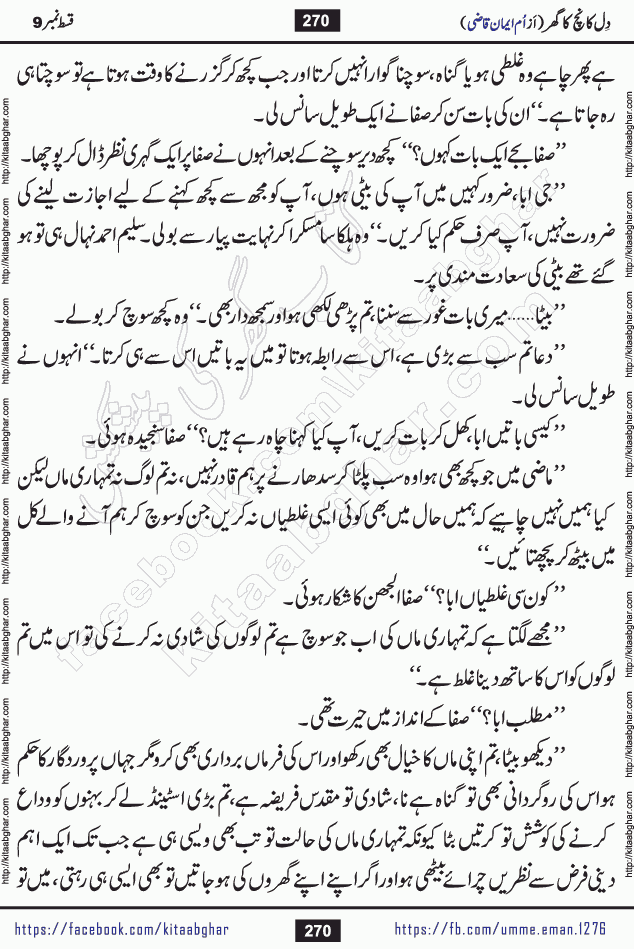 دِل کانچ کا گھر (از اُم ایمان قاضی)
270
قسط نمبر 9
ہے پھر چاہے وہ غلطی ہو یا گناہ، سوچنا گوارا نہیں کرتا اور جب کچھ کر گزرنے کا وقت ہوتا ہے تو سوچتا ہی
رہ جاتا ہے۔‘‘ ان کی بات سن کر صفا نے ایک طویل سانس لی۔
’’صفا بچے ایک بات کہوں؟‘‘ کچھ دیر سوچنے کے بعد انہوں نے صفا پر ایک گہری نظر ڈال کر پوچھا۔
’’جی ابا، ضرور کہیں میں آپ کی بیٹی ہوں، آپ کو مجھ سے کچھ کہنے کے لیے اجازت لینے کی
ضرورت نہیں، آپ صرف حکم کیا کریں۔‘‘ وہ ہلکا سا مسکرا کر نہایت پیار سے بولی۔ سلیم احمد نہال ہی تو ہو
گئے تھے بیٹی کی سعادت مندی پر۔
’’بیٹا...... میری بات غور سے سننا، تم پڑھی لکھی ہو اور سمجھ دار بھی۔‘‘ وہ کچھ سوچ کر بولے۔
’’دعا تم سب سے بڑی ہے، اس سے رابطہ ہوتا تو میں یہ باتیں اس سے ہی کرتا۔‘‘ انہوں نے
طویل سانس لی۔
’’کیسی باتیں ابا، کھل کر بات کریں، آپ کیا کہنا چاہ رہے ہیں؟‘‘ صفا سنجیدہ ہوئی۔
’’ماضی میں جو کچھ بھی ہوا وہ سب پلٹا کر سدھارنے پر ہم قادر نہیں، نہ تم لوگ نہ تمہاری ماں لیکن
کیا ہمیں نہیں چاہیے کہ ہمیں حال میں بھی کوئی ایسی غلطیاں نہ کریں جن کو سوچ کر ہم آنے والے کل
میں بیٹھ کر پچھتائیں۔‘‘
’’کون سی غلطیاں ابا؟‘‘ صفا الجھن کا شکار ہوئی۔
’’مجھے لگتا ہے کہ تمہاری ماں کی اب جو سوچ ہے تم لوگوں کی شادی نہ کرنے کی تو اس میں تم
لوگوں کو اس کا ساتھ دینا غلط ہے۔‘‘
’’مطلب ابا؟‘‘ صفا کے انداز میں حیرت تھی۔
’’دیکھو بیٹا، تم اپنی ماں کا خیال بھی رکھو اور اس کی فرماں برداری بھی کرو مگر جہاں پروردگار کا حکم
ہو اس کی روگردانی بھی تو گناہ ہے نا، شادی تو مقدس فریضہ ہے، تم بڑی اسٹینڈ لے کر بہنوں کو وداع
کرنے کی کوشش تو کرتیں بٹا کیونکہ تمہاری ماں کی حالت تو تب بھی ویسی ہی ہے جب تک ایک اہم
دینی فرض سے نظریں چرائے بیٹھی ہو اور اگر اپنے اپنے گھروں کی ہو جاتیں تو بھی ایسی ہی رہتی، میں تو
https://facebook.com/kitaabghar
270
https://fb.com/umme.eman.1276
http://kitaabghar.com
کتاب گھر کی پیشکش
facebook.com/kitaabghar
kitaabghar.com